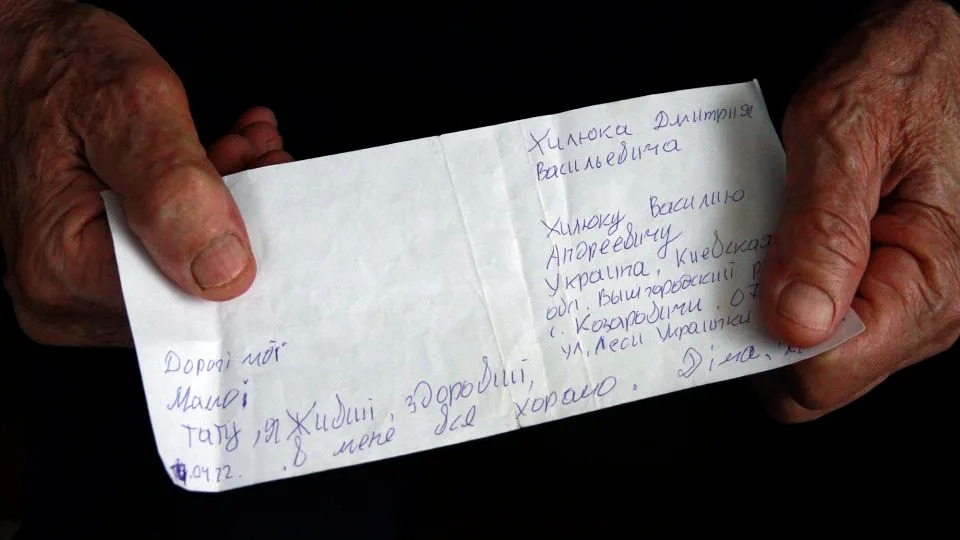 Хилюка Дмитрия
Васильевича
Хилюку Василию
Андреевичу
Украина, Киевская
обл. Вышгородский р
с. Козаровичи. 07
ул. Леси Украинки
Дорогі мої
Мамо і
тату, я живий, здоровий,
в мене все хорошо. Діма.
.04.22.